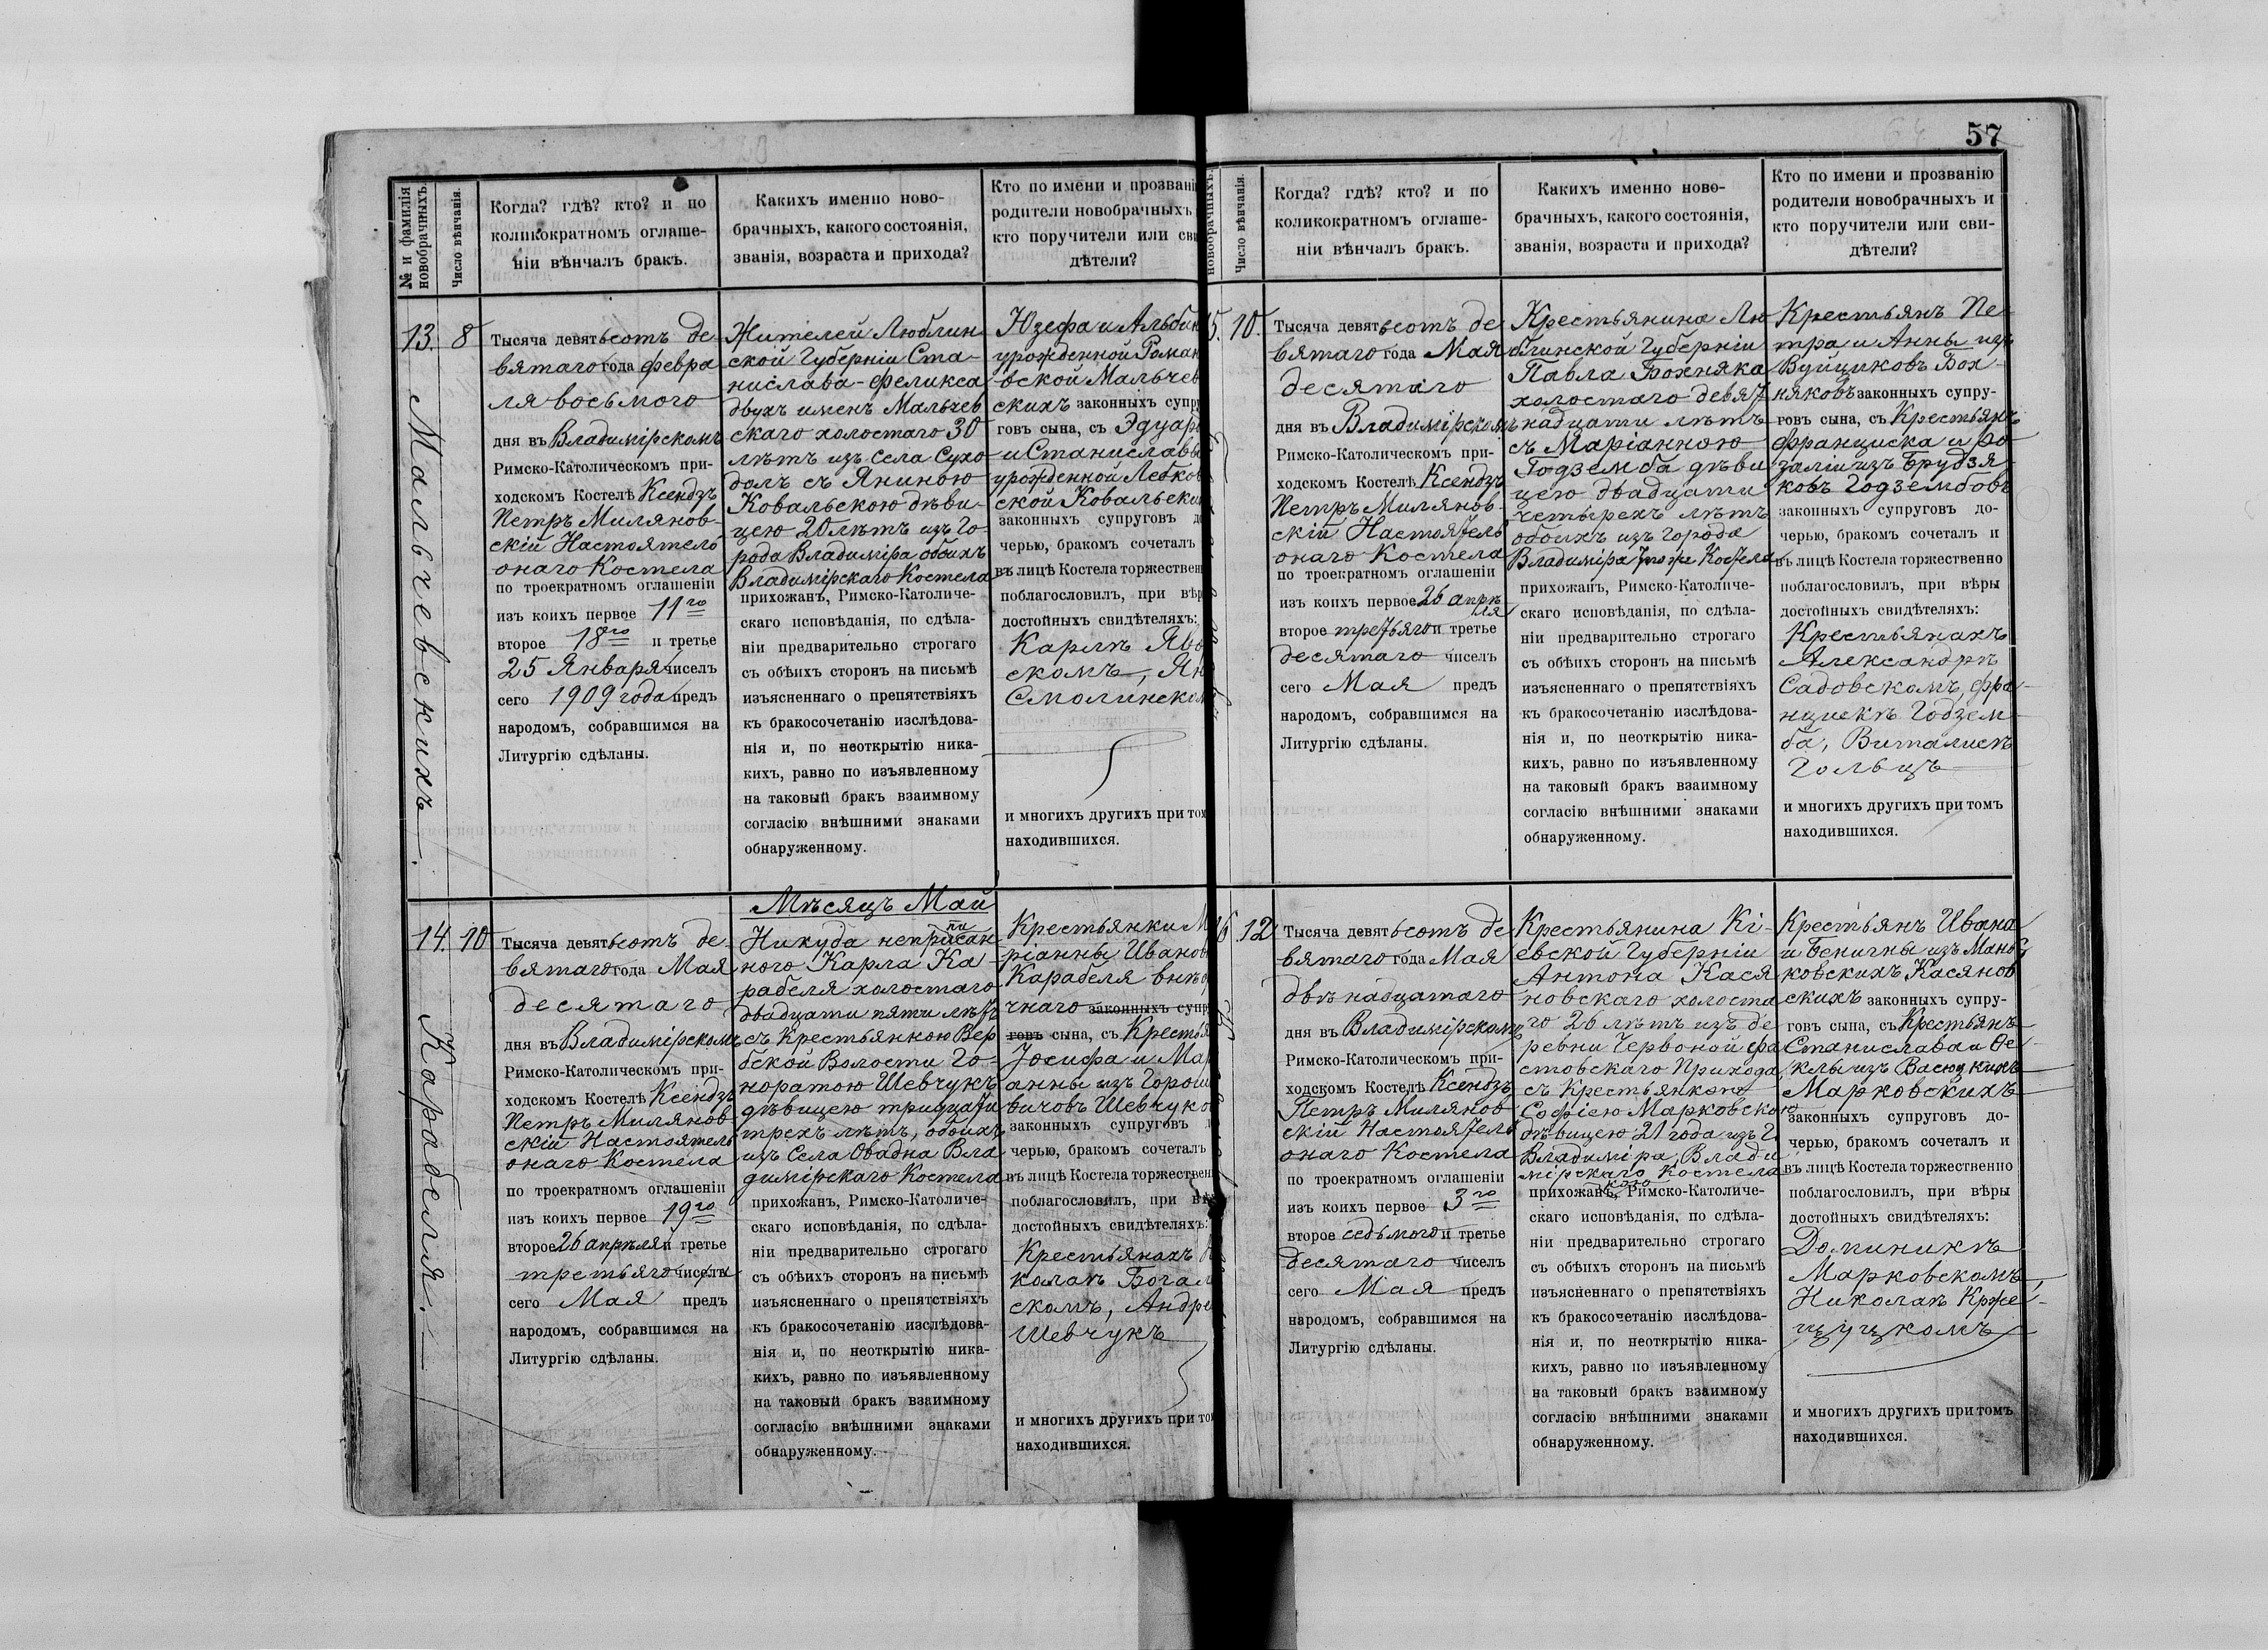 57
№ и фамилія новобрачныхъ.
Число вѣнчанія.
Когда? гдѣ? кто? и по
коликократномъ оглаше-
ніи вѣнчалъ бракъ.
Какихъ именно ново-
брачныхъ, какого состоянія,
званія, возраста и прихода?
Кто по имени и прозвані
родители новобрачныхъ
кто поручители или сви
дѣтели?
13.
8
Мальчевскихъ.
Тысяча девятьсотъ де-
вятаго года февра
ля восьмого
дня въ Владимірскомъ
Римско-Католическом при-
ходскомъ Костелѣ Ксендзъ
Петръ Милянов-
скій Настоятель
онаго Костела
по троекратном оглашеніи
изъ коихъ первое 11го
второе 18го и третье
25 Января чиселъ
сего 1909 года предъ
народомъ, собравшимся на
Литургію сдѣланы.
Жителей Люблин
ской Губерніи Ста-
нислава-Феликса
двухъ именъ Мальчев
скаго холостаго 30
лѣтъ изъ села Сухо
долъ съ Яниною
Ковальскою дѣви-
цею 20 лѣтъ изъ Го-
рода Владиміра обоихъ
Владимірскаго Костела
прихожанъ, Римско-Католиче-
скаго исповѣданія, по сдѣла-
ніи предварительно строгаго
съ обѣихъ сторонъ на письмѣ
изъясненнаго о препятствіяхъ
къ бракосочетанію изслѣдова-
нія и, по неоткрытію ника-
кихъ, равно по изъявленному
на таковый бракъ взаимному
согласію внѣшними знаками
обнаруженному.
Юзефа и Альбин
урожденной Роман
овской Мальчев
скихъ законныхъ супру
говъ сына, съ Эдуар
и Станиславы
урожденной Лебков
ской Ковальски
законныхъ супруговъ до
черью, бракомъ сочеталъ
въ лицѣ Костела торжествен
поблагословилъ, при вѣр
достойныхъ свидѣтеляхъ:
Карлѣ Яво
скомъ, Ян
Смолинском
и многихъ другихъ при том
находившихся.
14.
10
Карабеля.
Тысяча девятьсотъ де-
вятаго года Мая
десятаго
дня въ Владимірскомъ
Римско-Католическомъ при-
ходскомъ Костелѣ Ксендзъ
Петръ Милянов-
скій Настоятель
онаго Костела
по троекратном оглашеніи
изъ коихъ первое 19го
второе 26 апрѣля и третье
третьяго чиселъ
сего Мая предъ
народомъ, собравшимся на
Литургію сдѣланы.
Мѣсяцъ Май
Никуда неприписан-
ного Карла Ка-
рабеля холостаго
двадцати пяти лѣтъ
съ Крестьянкою Вер
бской Волости Го-
норатою Шевчукъ
дѣвицею тридцати
трехъ лѣтъ, обоихъ
изъ села Овадна Вла
димірскаго Костела
прихожанъ, Римско-Католиче-
скаго исповѣданія, по сдѣла-
ніи предварительно строгаго
съ обѣихъ сторонъ на письмѣ
изъясненнаго о препятствіяхъ
къ бракосочетанію изслѣдова-
нія и, по неоткрытію ника-
кихъ, равно по изъявленному
на таковый бракъ взаимному
согласію внѣшними знаками
обнаруженному.
Крестьянки М
ріанны Иванов
Карабеля внѣб
чнаго законныхъ супр
говъ сына, съ Крестья
Іосифа и Мар
анны изъ Горош
вичовъ Шевчуко
законныхъ супруговъ
черью, бракомъ сочеталъ
въ лицѣ Костела торжествен
поблагословилъ, при вѣ
достойныхъ свидѣтеляхъ:
Крестьянахъ
колаѣ Богал
скомъ, Андре
Шевчукъ
и многихъ другихъ при то
находившихся.
новобрачныхъ.
Число вѣнчанія.
Когда? гдѣ? кто? и по
коликократномъ оглаше-
ніи вѣнчалъ бракъ.
Какихъ именно ново-
брачныхъ, какого состоянія,
званія, возраста и прихода?
Кто по имени и прозванію
родители новобрачныхъ и
кто поручители или сви-
дѣтели?
5.
10.
Тысяча девятьсотъ де
вятаго года Мая
десятаго
дня въ Владимірскомъ
Римско-Католическомъ при-
ходскомъ Костелѣ Ксендзъ
Петръ Милянов-
скій Настоятель
онаго Костела
по троекратномъ оглашеніи
изъ коихъ первое 26 апрѣ
ля
второе третьяго и третье
десятаго чиселъ
сего Мая предъ
народомъ, собравшимся на
Литургію сдѣланы.
Крестьянина Лю
блинской Губерніи
Павла Бохняка
холостаго девят
надцати лѣтъ
съ Маріанною
Годземба дѣви
цею двадцати
четырехъ лѣтъ
обоихъ изъ города
Владиміра тоже Костела
прихожанъ, Римско-Католиче-
скаго исповѣданія, по сдѣла-
ніи предварительно строгаго
съ обѣихъ сторонъ на письмѣ
изъясненнаго о препятствіяхъ
къ бракосочетанію изслѣдова-
нія и, по неоткрытію ника-
кихъ, равно по изъявленному
на таковый бракъ взаимному
согласію внѣшними знаками
обнаруженному.
Крестьянъ Пе-
тра и Анны изъ
Вуйциковъ Бох-
няковъ законныхъ супру-
говъ сына, съ Крестьянъ
Франциска и Ро-
заліи изъ Брудзя
ковъ Годзембовъ
законныхъ супруговъ до-
черью, бракомъ сочеталъ и
въ лицѣ Костела торжественно
поблагословилъ, при вѣры
достойныхъ свидѣтеляхъ:
Крестьянахъ
Александрѣ
Садовскомъ, Фра-
нцискѣ Годзем-
ба, Виталисѣ
Гольцъ
и многихъ другихъ при томъ
находившихся.
16
12
Тысяча девятьсотъ де
вятаго года Мая
двѣнадцатаго
дня въ Владимірскомъ
Римско-Католическомъ при-
ходскомъ Костелѣ Ксендзъ
Петръ Милянов-
скій Настоятель
онаго Костела
по троекратномъ оглашеніи
изъ коихъ первое 3го
второе седьмого и третье
десятаго чиселъ
сего Мая предъ
народомъ, собравшимся на
Литургію сдѣланы.
Крестьянина Кі-
евской Губерніи
Антона Кася
новскаго холоста
го 26 лѣтъ изъ де-
ревни Червоной Фа
стовскаго Прихода
съ Крестьянкою
Софіею Марковскою
дѣвицею 21 года изъ г.
Владиміра, Влади
мірскаго Костела
прихожанъ, Римско-Католиче-
скаго исповѣданія, по сдѣла-
ніи предварительно строгаго
съ обѣихъ сторонъ на письмѣ
изъясненнаго о препятствіяхъ
къ бракосочетанію изслѣдова-
нія и, по неоткрытію ника-
кихъ, равно по изъявленному
на таковый бракъ взаимному
согласію внѣшними знаками
обнаруженному.
Крестьянъ Ивана
и Бенигны изъ Мань-
ковскихъ Касянов
скихъ законныхъ супру-
говъ сына, съ Крестьянъ
Станислава и Ѳе-
клы изъ Васюцкихъ
Марковскихъ
законныхъ супруговъ до-
черью, бракомъ сочеталъ и
въ лицѣ Костела торжественно
поблагословилъ, при вѣры
достойныхъ свидѣтеляхъ:
Доминикѣ
Марковскомъ,
Николаѣ Крже-
цуцкомъ
и многихъ другихъ при томъ
находившихся.